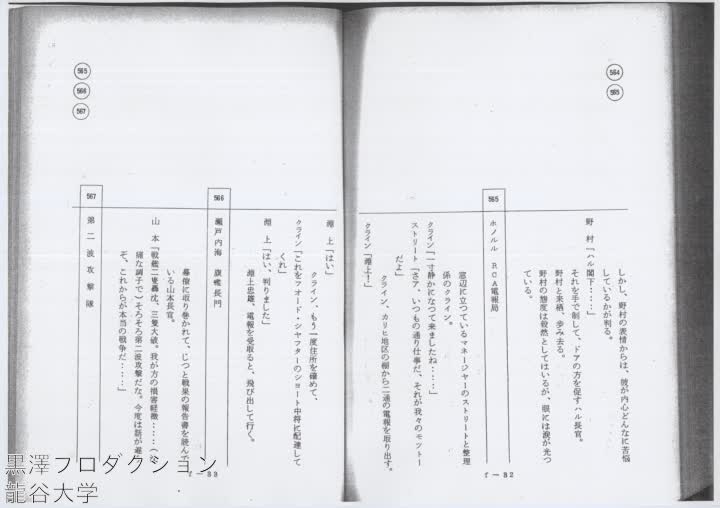 564
565
しかし、野村の表情からは、彼が内心どんなに苦悩
しているかが判る。
野 村「ハル閣下‥‥‥」
それを手で制して、ドアの方を促すハル長官。
野村と来栖、歩み去る。
野村の態度は毅然としてはいるが、眼には涙が光つ
ている。
565
ホノルル RCA電報局
窓辺に立つているマネージャーのストリートと整理
係のクライン。
クライン「一寸静かになつて来ましたね‥‥‥」
ストリート「さあ、いつもの通り仕事だ、それが我々のモットー
だよ」
クライン、カリヒ地区の棚から二通の電報を取り出す。
クライン「淵上!」
f－82
565
566
567
淵 上「はい」
クライン、もう一度住所を確めて、
クライン「これをフオード・シャフターのショート中将に配達して
くれ」
淵 上「はい、判りました」
淵上忠雄、電報を受取ると、飛び出して行く。
566
瀬戸内海 旗艦長門
幕僚に取り巻かれて、じつと戦果の報告書を読んで
いる山本長官。
山 本「戦艦二隻轟沈、三隻大破。我が方の損害軽微‥‥‥(
な調子で)そろそろ第二波攻撃だな。今度は話が違う
ぞ、これからが本当の戦争だ‥‥‥」
567
第 二 波 攻 撃 隊
f－83
黒澤プロダクション
龍谷大学